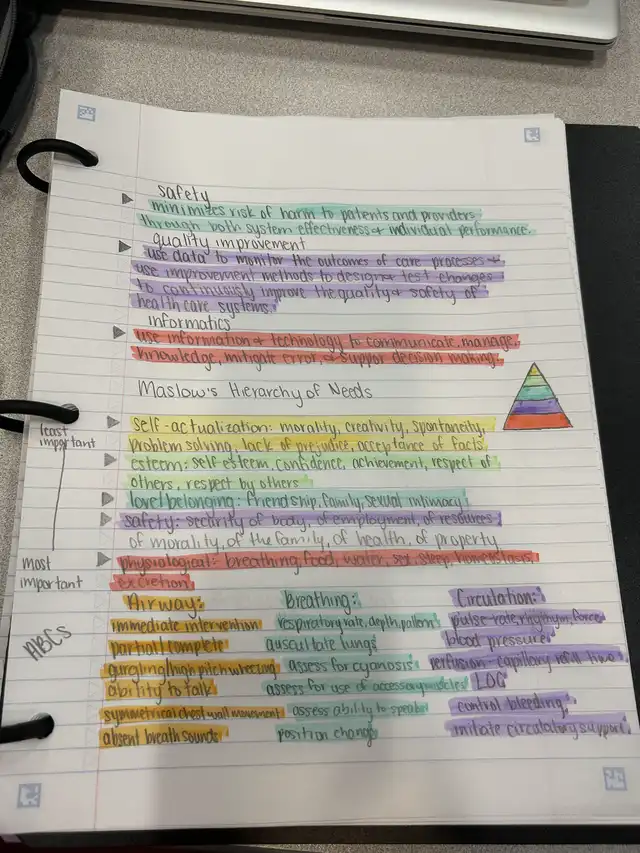 safety
minimizes risk of harm to patients and providers
through both system effectiveness & individual performance.
quality improvement
use data to monitor the outcomes of care processes &
use improvement methods to design & test changes
to continuously improve the quality & safety of
health care systems.
informatics
use information & technology to communicate, manage,
knowledge, mitigate error, & support decision making
Maslow's Hierarchy of Needs
least
important
self-actualization: morality, creativity, spontaneity,
problem solving, lack of prejudice, acceptance of facts
esteem: self esteem, confidence, achievement, respect of
others, respect by others
love/belonging: friendship, family, sexual intimacy
safety: security of body, of employment, of resources
of morality, of the family, of health, of property
most
important
physiological: breathing, food, water, sex, sleep, homeostasis,
excretion
ABCs
Airway: Breathing: Circulation:
immediate intervention respiratory rate, depth, pattern pulse rate, rhythm, force
partial/complete auscultate lungs blood pressure
gurgling/high pitch wheezing assess for cyanosis perfusion-capillary refill
ability to talk assess for use of accessory muscles LOC
symmetrical chest wall movement assess ability to speak control bleeding
absent breath sounds position change initiate circulatory support